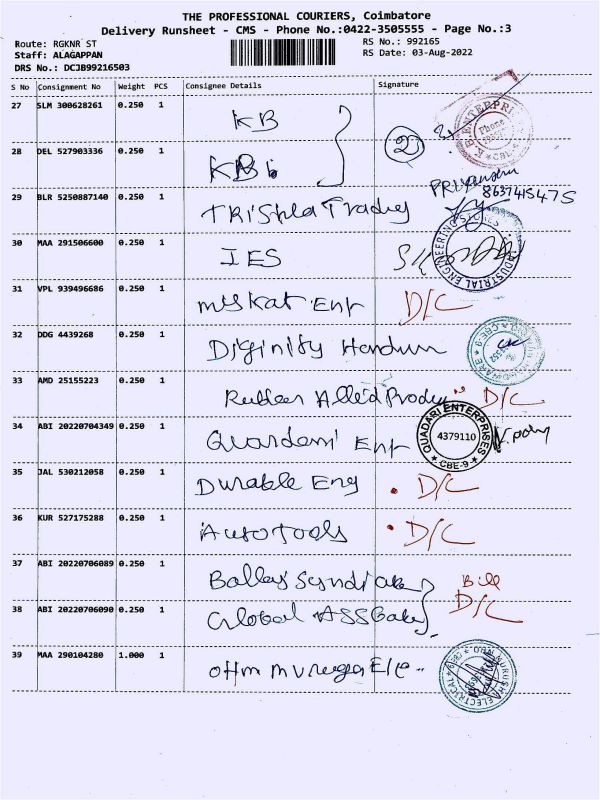 THE PROFESSIONAL COURIERS, Coimbatore
Delivery Runsheet - CMS - Phone No.:0422-3505555 - Page No.:3
Route: RGKNR ST
RS No.: 992165
Staff: ALAGAPPAN
RS Date: 03-Aug-2022
DRS No.: DCJB99216503
S No Consignment No Weight PCS Consignee Details Signature
27 SLM 300628261 0.250 1 KB
K.B. ENTERPRISE Phone CBE
28 DEL 527903336 0.250 1 KB 2
29 BLR 5250887140 0.250 1 Trishla
8637415475
30 MAA 291506600 0.250 1 IES
INDUSTRIAL ENGINEERING STORES
31 VPL 939496686 0.250 1 Muskat Ent D/C
32 DDG 4439268 0.250 1 Diginity
HARDWARE CBE-9
33 AMD 25155223 0.250 1 Rubber Allied D/C
34 ABI 20220704349 0.250 1 Ent
QUADARI ENTERPRISES 4379110 CBE-9
35 JAL 530212058 0.250 1 Durable Eng D/C
36 KUR 527175288 0.250 1 Auto Tools D/C
37 ABI 20220706089 0.250 1 Bill
38 ABI 20220706090 0.250 1 Global D/C
39 MAA 290104280 1.000 1 Ohm Muruga Ele
OHM ELECTRICAL